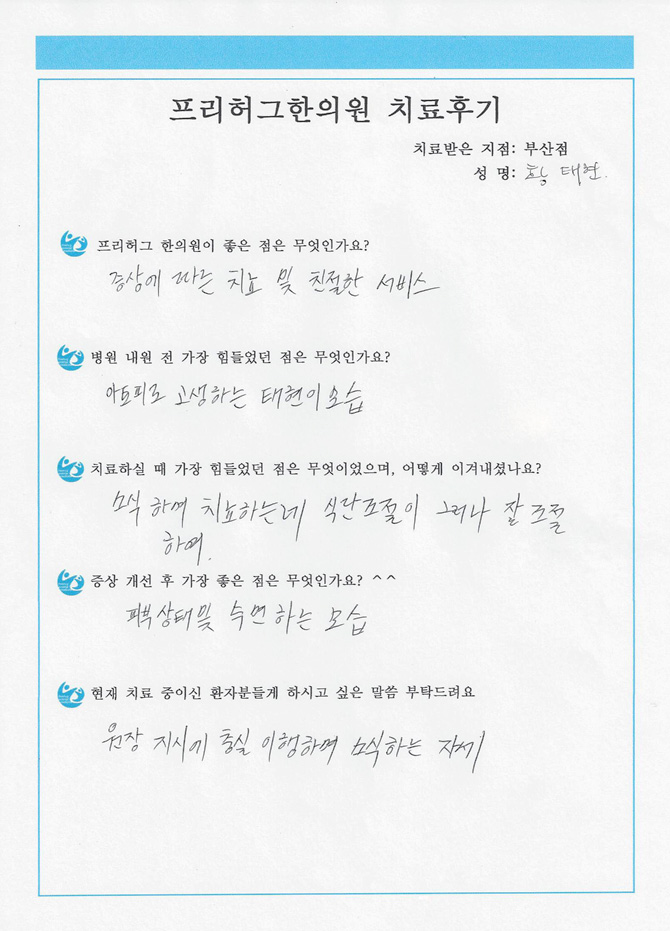 프리허그한의원 치료후기
치료받은 지점: 부산점
성 명: 황 태현.
프리허그 한의원이 좋은 점은 무엇인가요?
증상에 따른 치료 및 친절한 서비스
병원 내원 전 가장 힘들었던 점은 무엇인가요?
아토피로 고생하는 태현이 모습
치료하실 때 가장 힘들었던 점은 무엇이었으며, 어떻게 이겨내셨나요?
소식 하며 치료하는데 식단조절이 그러나 잘 조절
하며.
증상 개선 후 가장 좋은 점은 무엇인가요? ^^
피부상태및 숙면 하는 모습
현재 치료 중이신 환자분들게 하시고 싶은 말씀 부탁드려요
원장 지시에 충실 이행하며 소식하는 자세